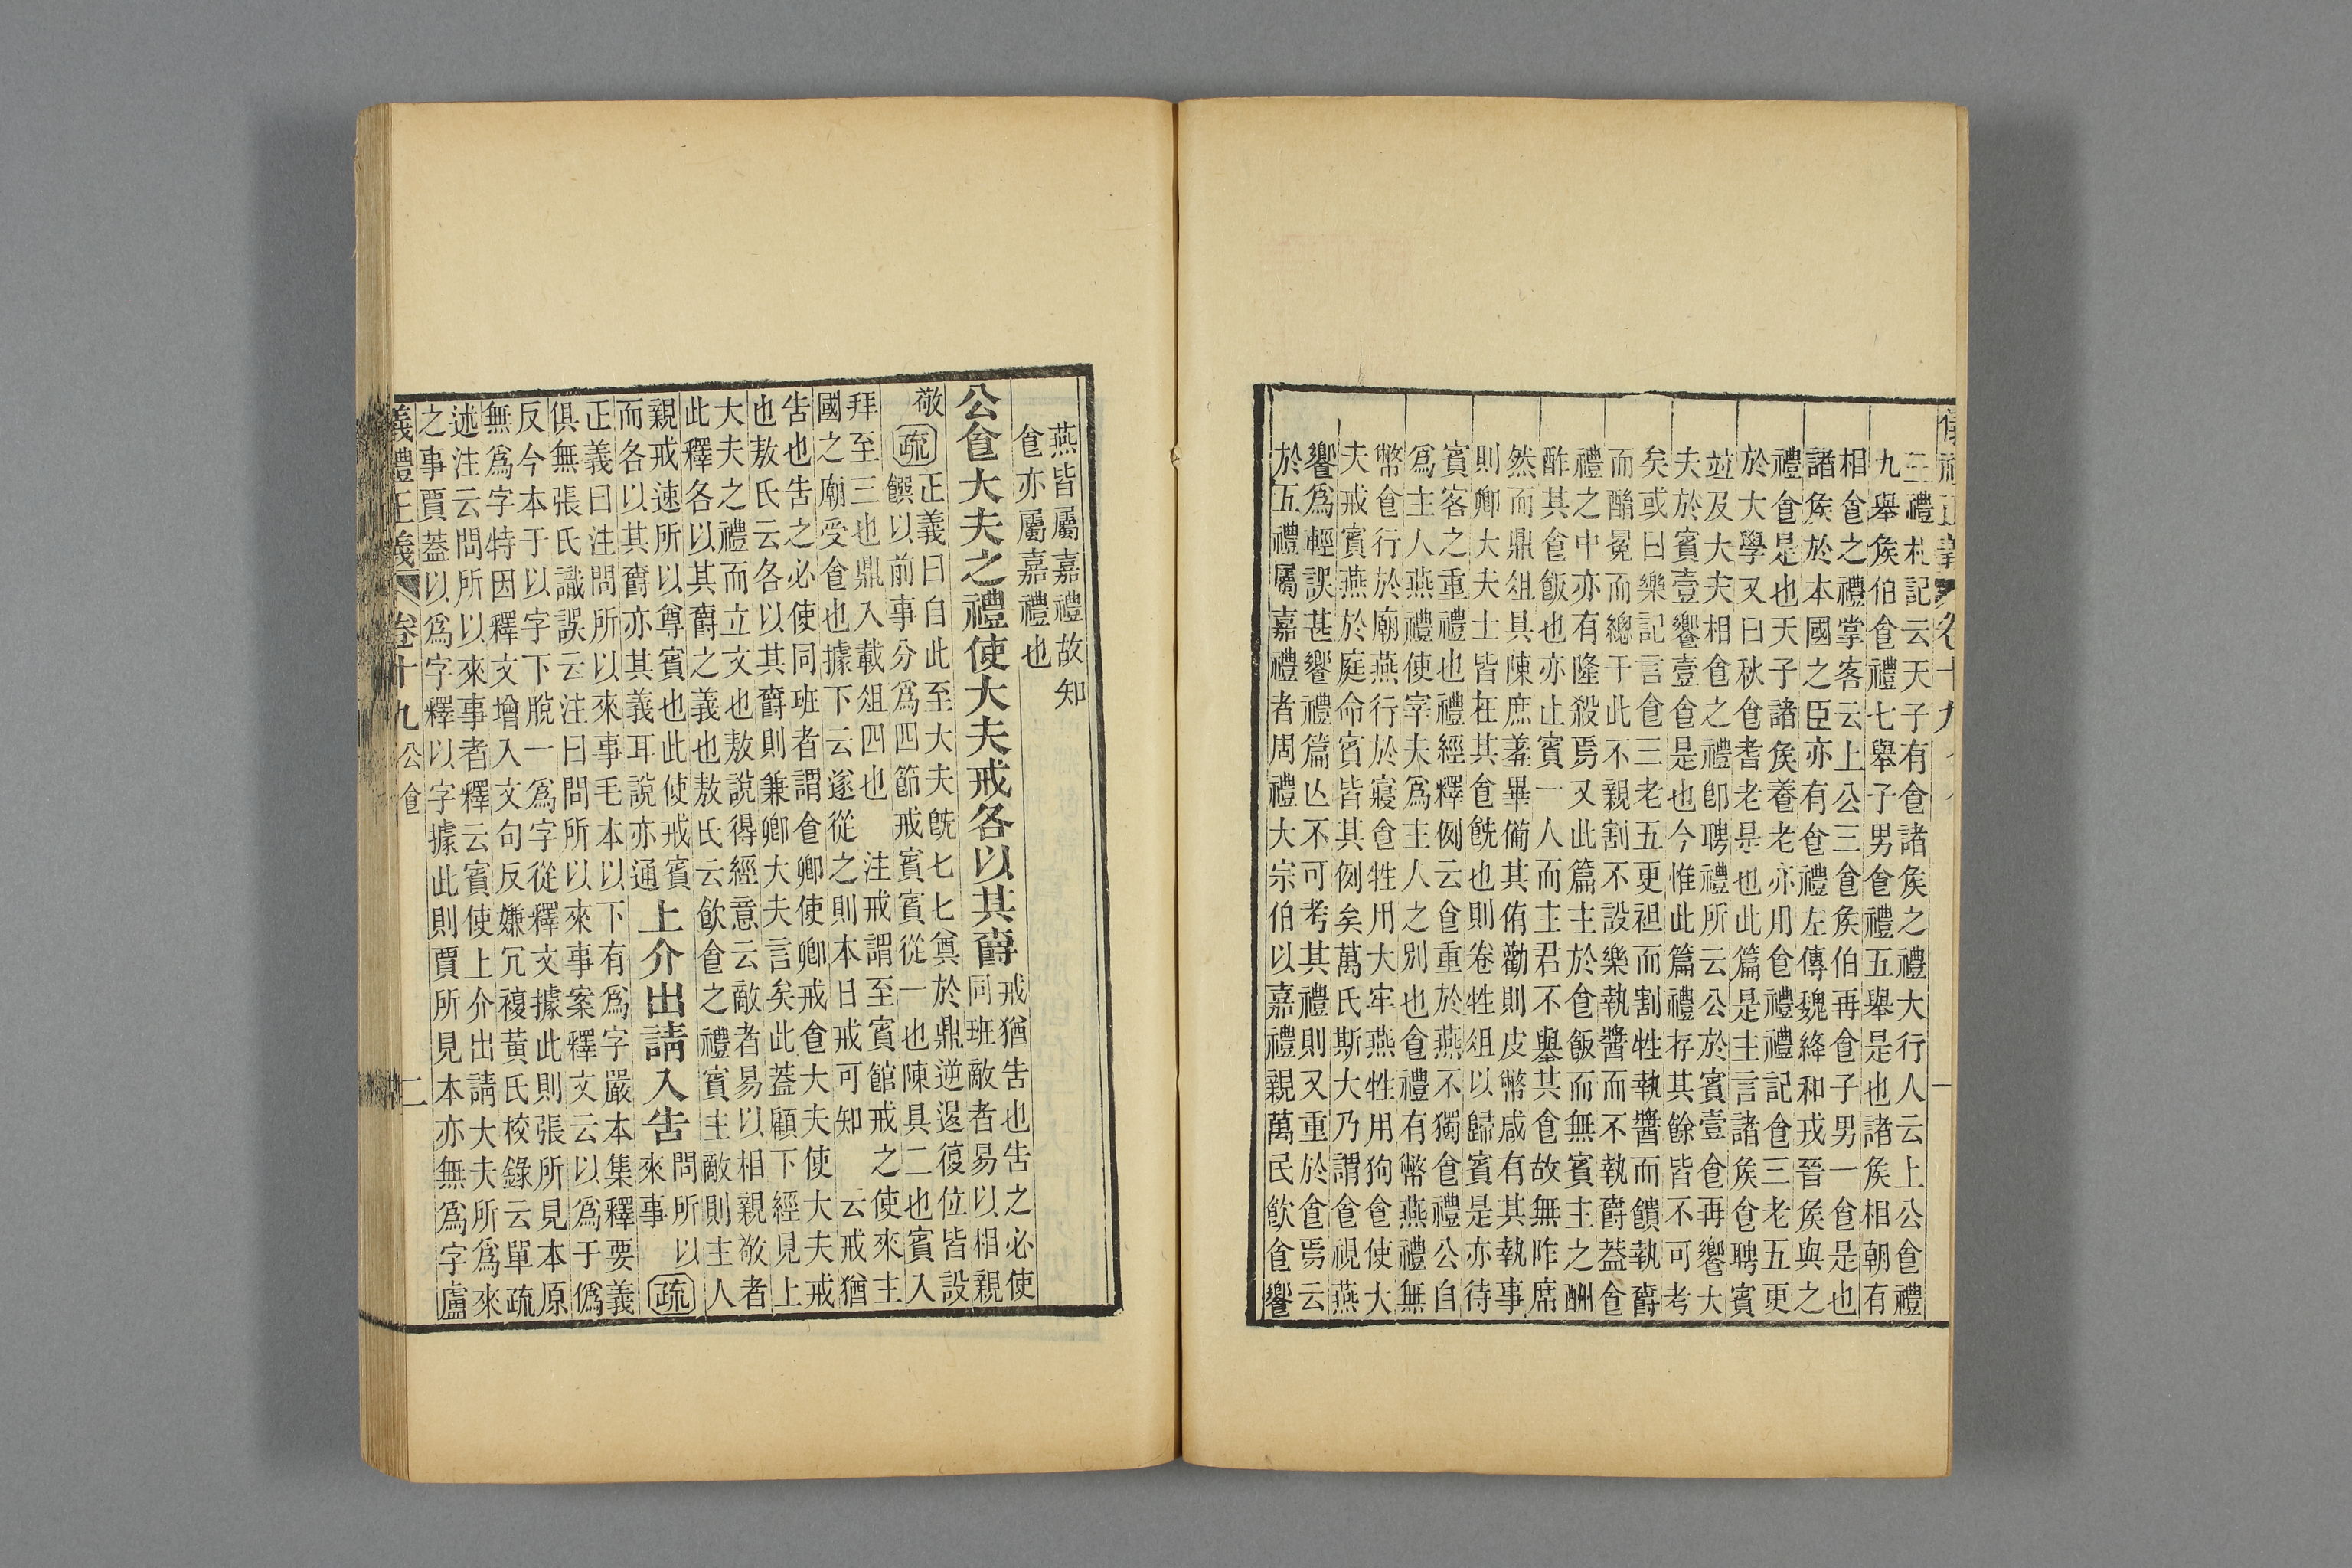 正義 卷十九
三禮札記云天子有食諸侯之禮大行人云上公食禮
九舉侯伯食禮七舉子男食禮五舉是也諸侯相朝有
相食之禮掌客云上公三食侯伯再食子男一食是也
諸侯於本國之臣亦有食禮左傳魏絳和戎晉侯與之
禮食是也天子諸侯養老亦用食禮禮記食三老五更
於大學又曰秋食耆老是也此篇是主言諸侯食聘賓
竝及大夫相食之禮卽聘禮所云公於賓壹食再饗大
夫於賓壹饗壹食是也今惟此篇禮存其餘皆不可考
矣或曰樂記言食三老五更袒而割牲執醬而饋執爵
而酳冕而總干此不親割不設樂執醬而不執爵蓋食
禮之中亦有隆殺焉又此篇主於食飯而無賓主之酬
酢其食飯也亦止賓一人而主君不舉其食故無阼席
然而鼎俎具陳庶羞畢備其侑勸則皮幣咸有其執事
則卿大夫士皆在其食旣也則卷牲俎以歸賓是亦待
賓客之重禮也禮經釋例云食重於燕不獨食禮公自
爲主人燕禮使宰夫爲主人之別也食禮有幣燕禮無
幣食行於廟燕行於寢食牲用大牢燕牲用狗食使大
夫戒賓燕於庭命賓皆其例矣萬氏斯大乃謂食視燕
饗爲輕誤甚饗禮篇亾不可考其禮則又重於食焉云
於五禮屬嘉禮者周禮大宗伯以嘉禮親萬民飮食饗
燕皆屬嘉禮故知
食亦屬嘉禮也
公食大夫之禮使大夫戒各以其爵
戒猶告也告之必使
同班敵者易以相親
敬
疏
正義曰自此至大夫旣匕匕奠於鼎逆退復位皆設
饌以前事分爲四節戒賓賓從一也陳具二也賓入
拜至三也鼎入載俎四也 注戒謂至賓館戒之使來主
國之廟受食也據下云遂從之則本日戒可知 云戒猶
告也告之必使同班者謂食卿使卿戒食大夫使大夫戒
也敖氏云各以其爵則兼卿大夫言矣此蓋顧下經見上
大夫之禮而立文也敖說得經意云敵者易以相親敬者
此釋各以其爵之義也敖氏云飮食之禮賓主敵則主人
親戒速所以尊賓也此使戒賓
而各以其爵亦其義耳說亦通
上介出請入告
問所以
來事
疏
正義曰注問所以來事毛本以下有爲字嚴本集釋要義
俱無張氏識誤云注曰問所以來事案釋文云以爲于僞
反今本于以字下脫一爲字從釋文據此則張所見本原
無爲字特因釋文增入文句反嫌冗複黃氏校錄云單疏
述注云問所以來事者釋云賓使上介出請大夫所爲來
之事賈蓋以爲字釋以字據此則賈所見本亦無爲字盧
禮正義 卷十九 公食 二